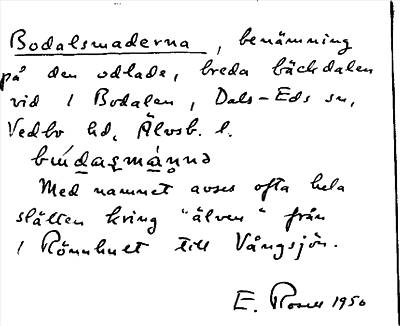 Bodalsmaderna, benämning
på den odlade, breda bäckdalen
vid / Bodalen, Dals-Eds sn,
Vedbo hd, Älvsb. l.
Med namnet avses ofta hela
slätten kring "älven" från
/ Rönnhult till Vångsjön.
E. 1950